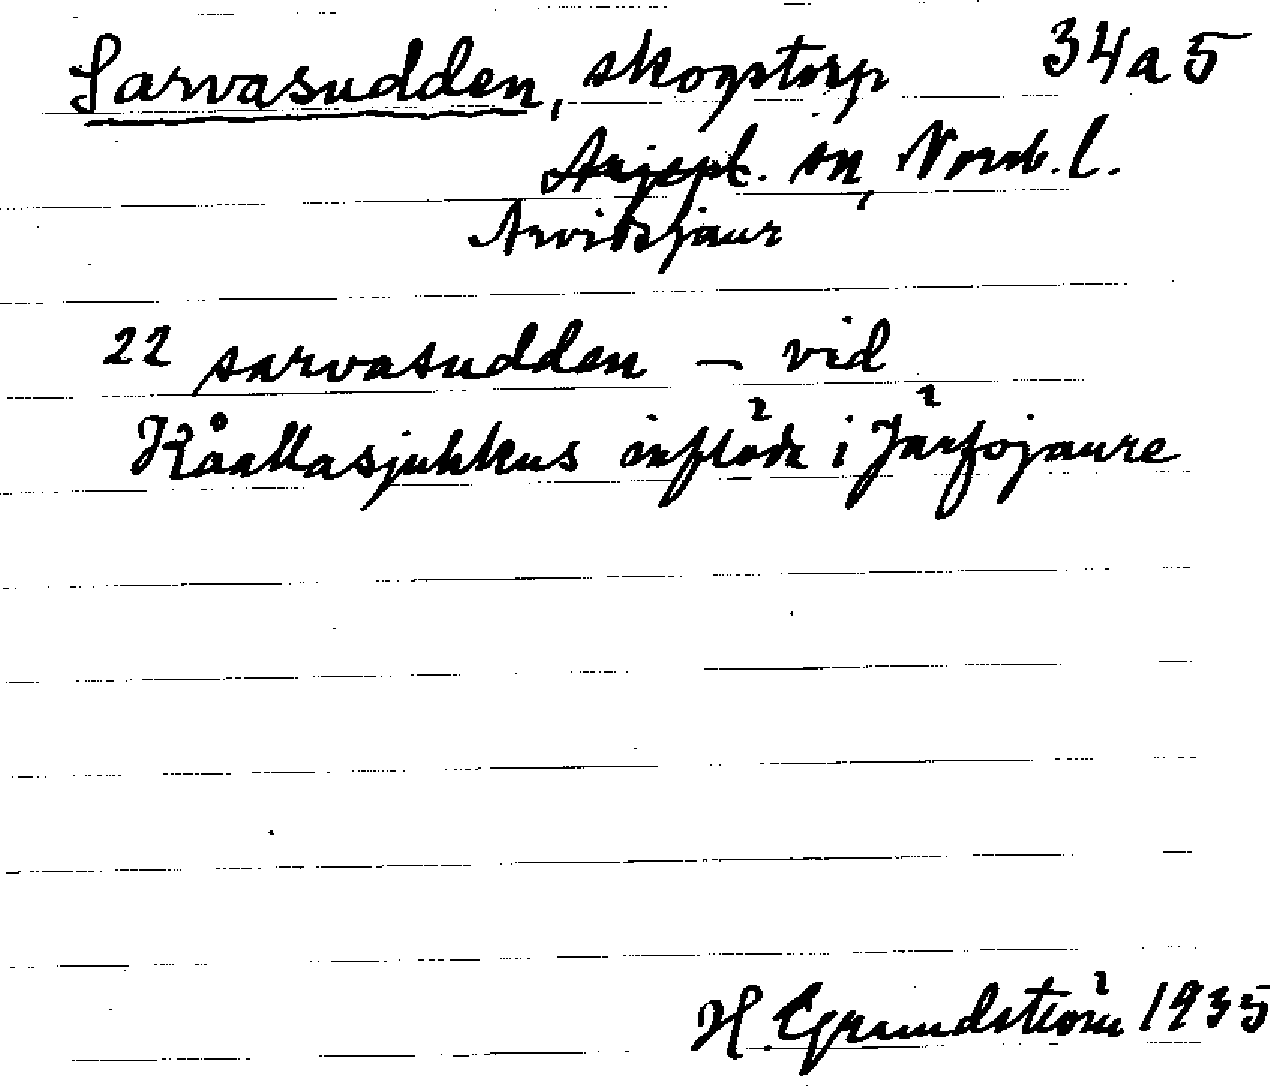 Sarvasudden, skogstorp 34a5
Arjepl. sn, Norrb. l.
Arvidsjaur
22 sarvasudden — vid
Kåallasjuhkus inflöde i Järfojaure
H. Grundström 1935